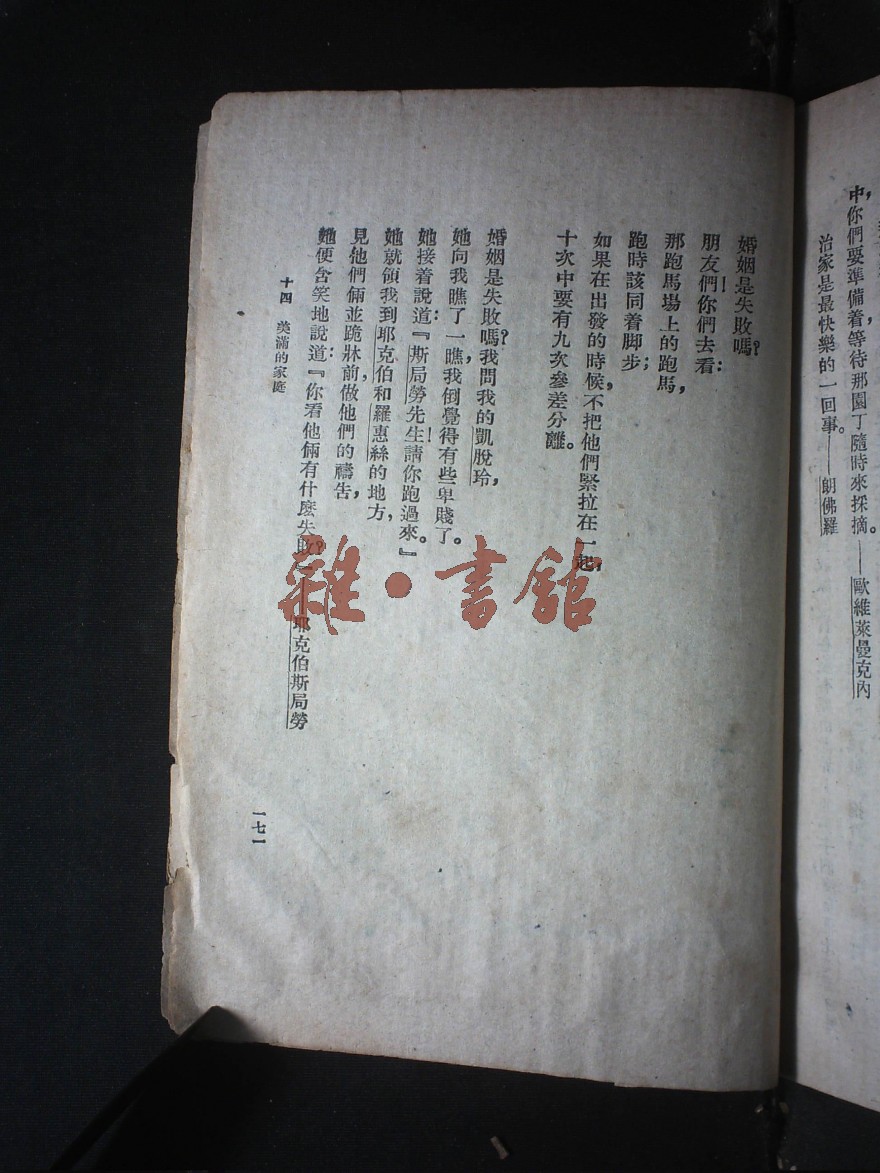 中，你們要準備着等待那園丁隨時來採摘。——歐維萊曼克內
治家是最快樂的一回事。——朗佛羅
婚姻是失敗嗎？
朋友們！你們去看：
那跑馬場上的跑馬，
跑時該同着脚步；
如果在出發的時候，不把他們緊拉在一起，
十次中要有九次參差分離。
婚姻是失敗嗎？我問我的凱脫玲，
她向我瞧了一瞧，我倒覺得有些卑賤了。
她接着說道：『斯局勞先生！請你跑過來。』
她就領我到耶克伯和羅惠絲的地方，
見他們倆並跪牀前，做他們的禱告，
她便含笑地說道：『你看他倆有什麽失敗？』——耶克伯斯局勞
十四 美滿的家庭
一七一
雜·書館